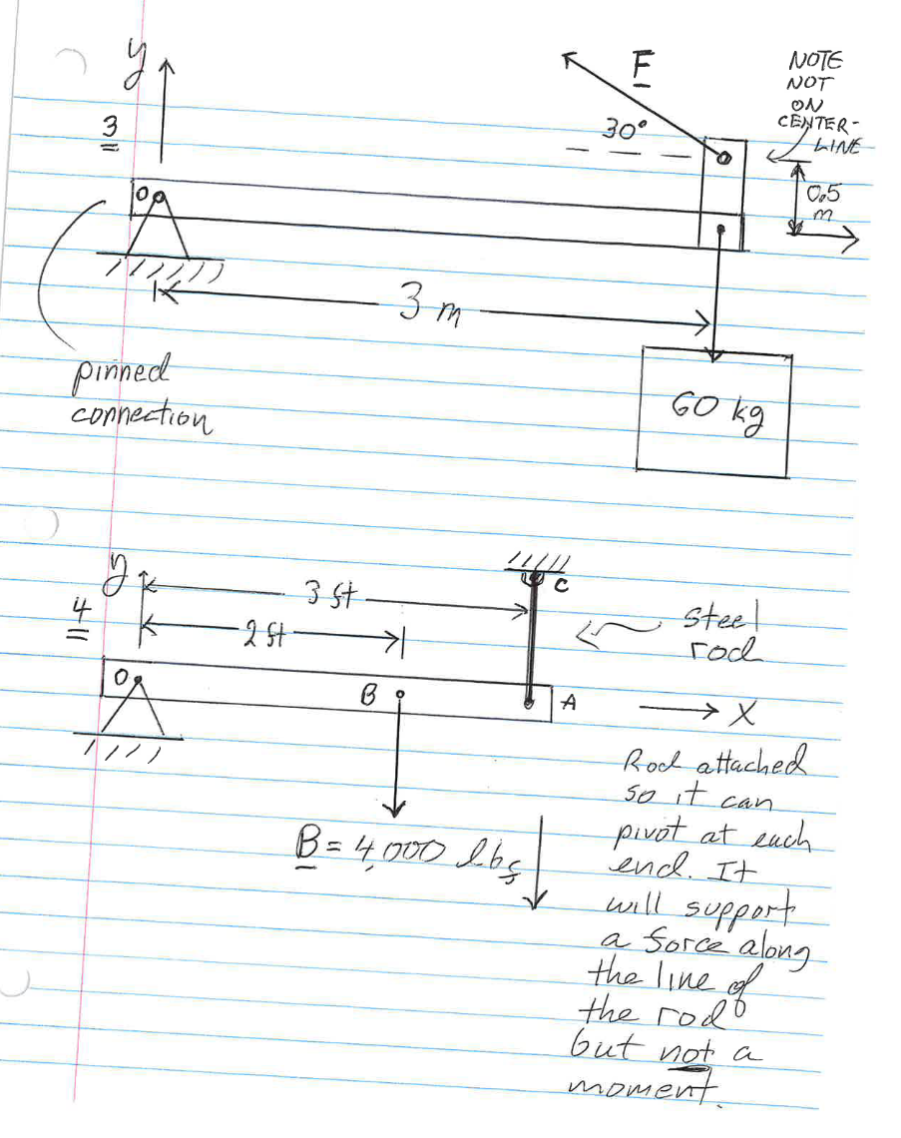 y
F
NOTE
NOT
ON
CENTER-
LINE
3
30°
0.5
m
O
3 m
pinned
connection
60 kg
y
C
3 ft
steel
rod
4
2 ft
O
B
A
X
Rod attached
so it can
pivot at each
end. It
will support
a force along
the line of
the rod
but not a
moment.
B = 4,000 lbf